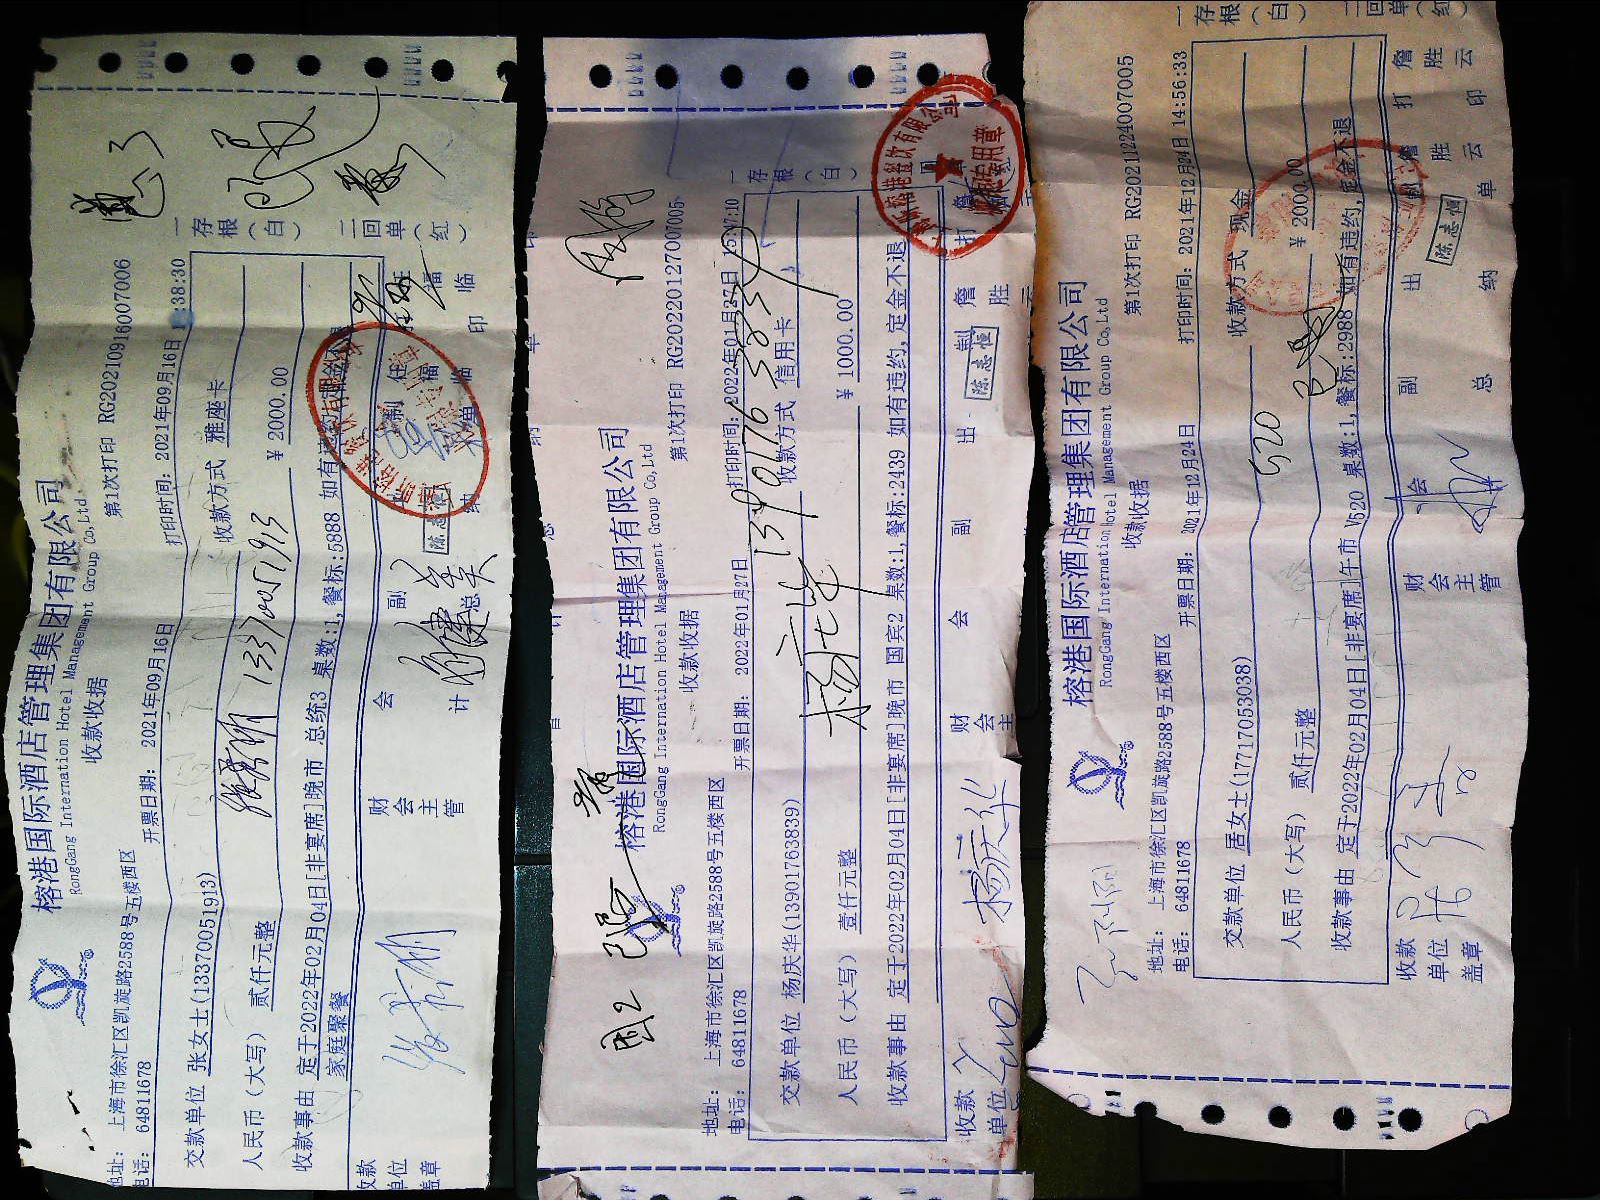 榕港国际酒店管理集团有限公司
RongGang International Hotel Management Group Co,Ltd
收款收据
第1次打印 RG20210916007006
地址: 上海市徐汇区凯旋路2588号五楼西区
电话: 64811678
开票日期: 2021年09月16日
打印时间: 2021年09月16日 :38:30
交款单位 张女士(13370051913)
收款方式 雅座卡
13370051913
人民币(大写) 贰仟元整
¥ 2000.00
收款事由 定于2022年02月04日[非宴席]晚市 总统3 桌数:1,餐标:5888 如有违约
家庭聚餐
一存根(白)
二回单(红)
收款单位盖章
财会主管
会计
副总
陈志恒
出纳
制单
任福临
打印
任福临
榕港国际酒店管理集团有限公司
RongGang International Hotel Management Group Co,Ltd
收款收据
第1次打印 RG20220127007005
国2
地址: 上海市徐汇区凯旋路2588号五楼西区
电话: 64811678
开票日期: 2022年01月27日
打印时间: 2022年01月27日 15:07:10
交款单位 杨庆华(13901763839)
收款方式 信用卡
杨庆华 13901763839
人民币(大写) 壹仟元整
¥ 1000.00
收款事由 定于2022年02月04日[非宴席]晚市 国宾2 桌数:1,餐标:2439 如有违约,定金不退
一存根(白)
收款单位
杨庆华
财会主
会
副
出
陈志恒
制
詹胜云
打
榕港国际酒店管理集团有限公司
RongGang International Hotel Management Group Co,Ltd
收款收据
第1次打印 RG20211224007005
地址: 上海市徐汇区凯旋路2588号五楼西区
电话: 64811678
开票日期: 2021年12月24日
打印时间: 2021年12月24日 14:56:33
交款单位 居女士(17717053038)
收款方式 现金
520
人民币(大写) 贰仟元整
¥ 2000.00
收款事由 定于2022年02月04日[非宴席]午市 V520 桌数:1,餐标:2988 如有违约,定金不退
一存根(白)
二回单(红)
收款单位盖章
财会主管
会
副总
出纳
陈志恒
制单
詹胜云
打印
詹胜云